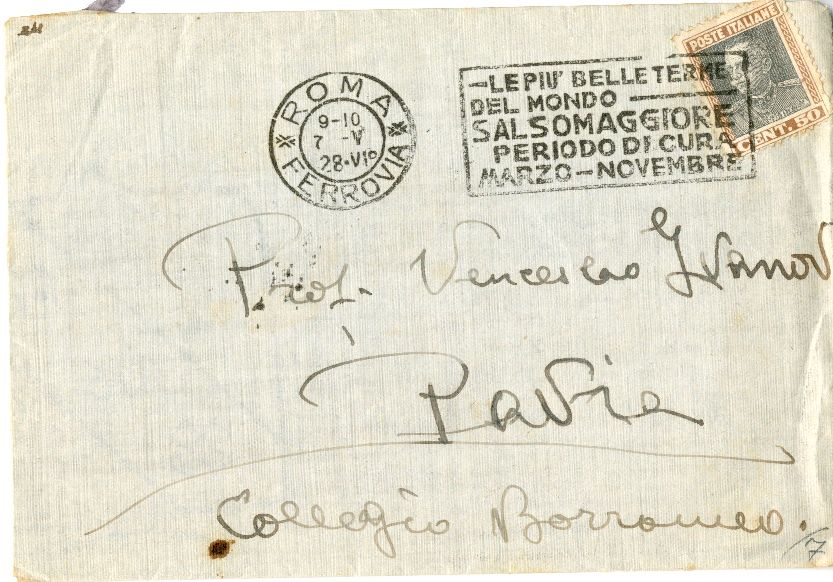 ROMA
9-10
7 -V
28·VIº
* FERROVIA *
POSTE ITALIANE
CENT. 50
—LE PIU' BELLE TERME
DEL MONDO —
SALSOMAGGIORE
PERIODO DI CURA
MARZO—NOVEMBRE
Prof. Venceslao Ivanov
Pavia
Collegio Borromeo.
17